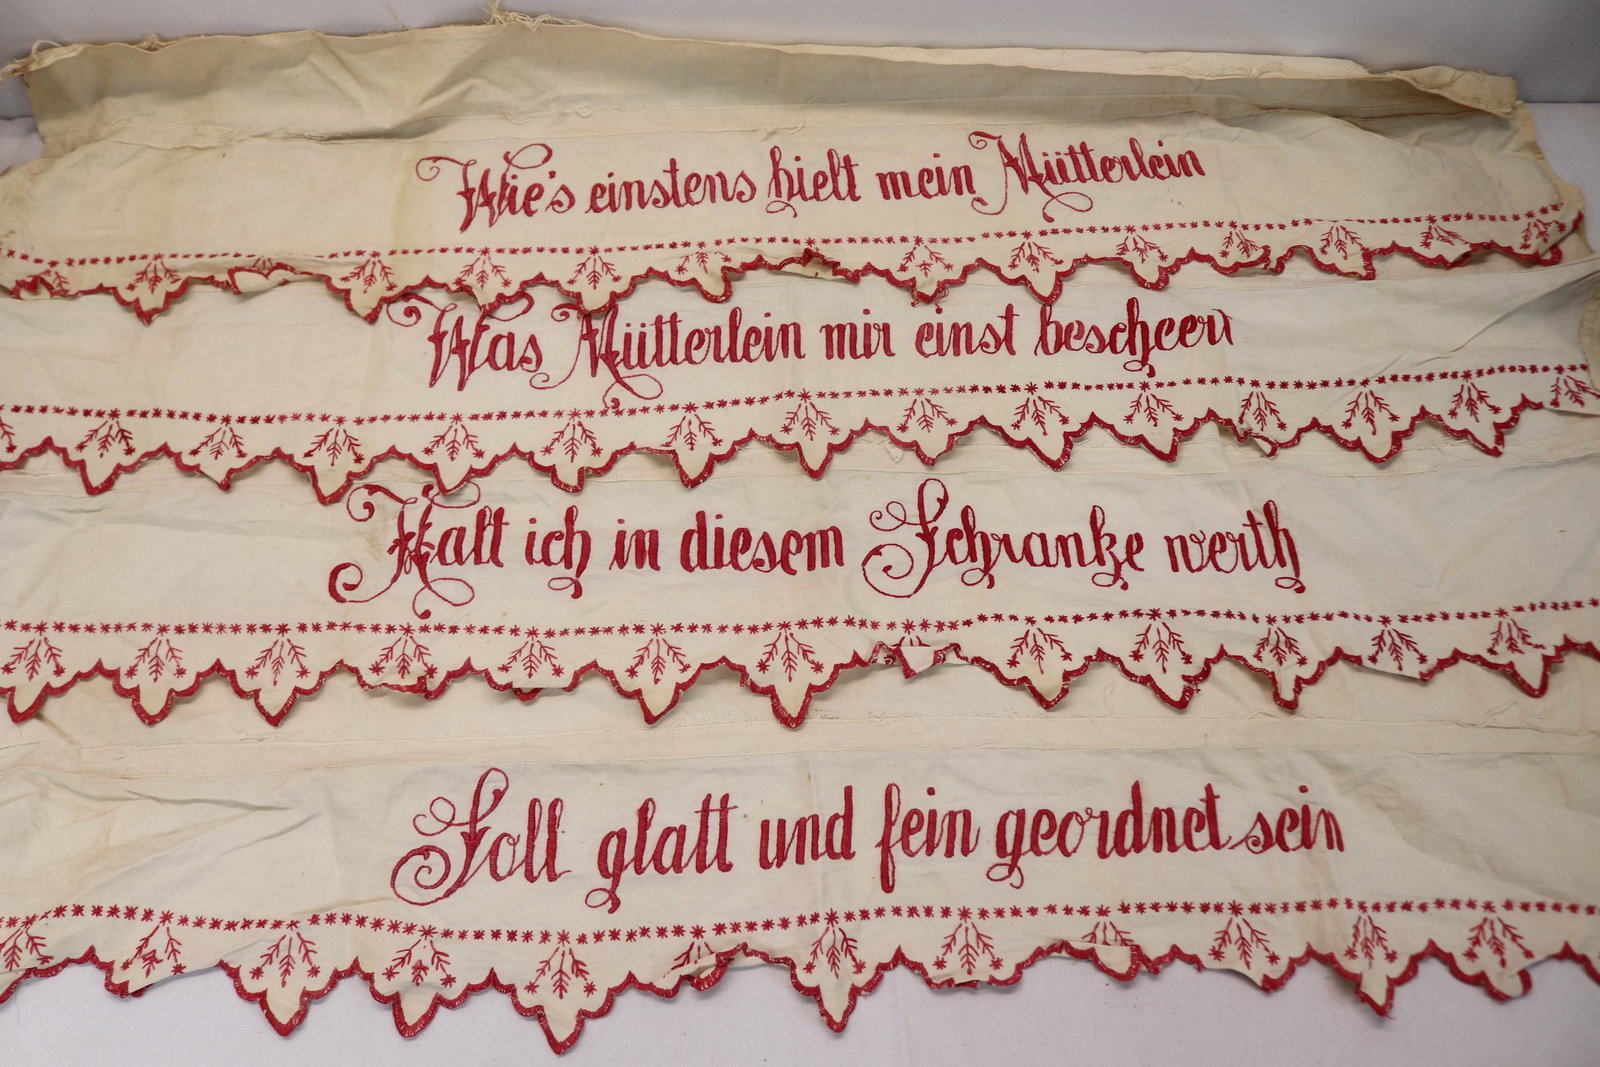 Wie's einstens hielt mein Mütterlein
Was Mütterlein mir einst bescheert
Halt ich in diesem Schranke werth
Soll glatt und fein geordnet sein